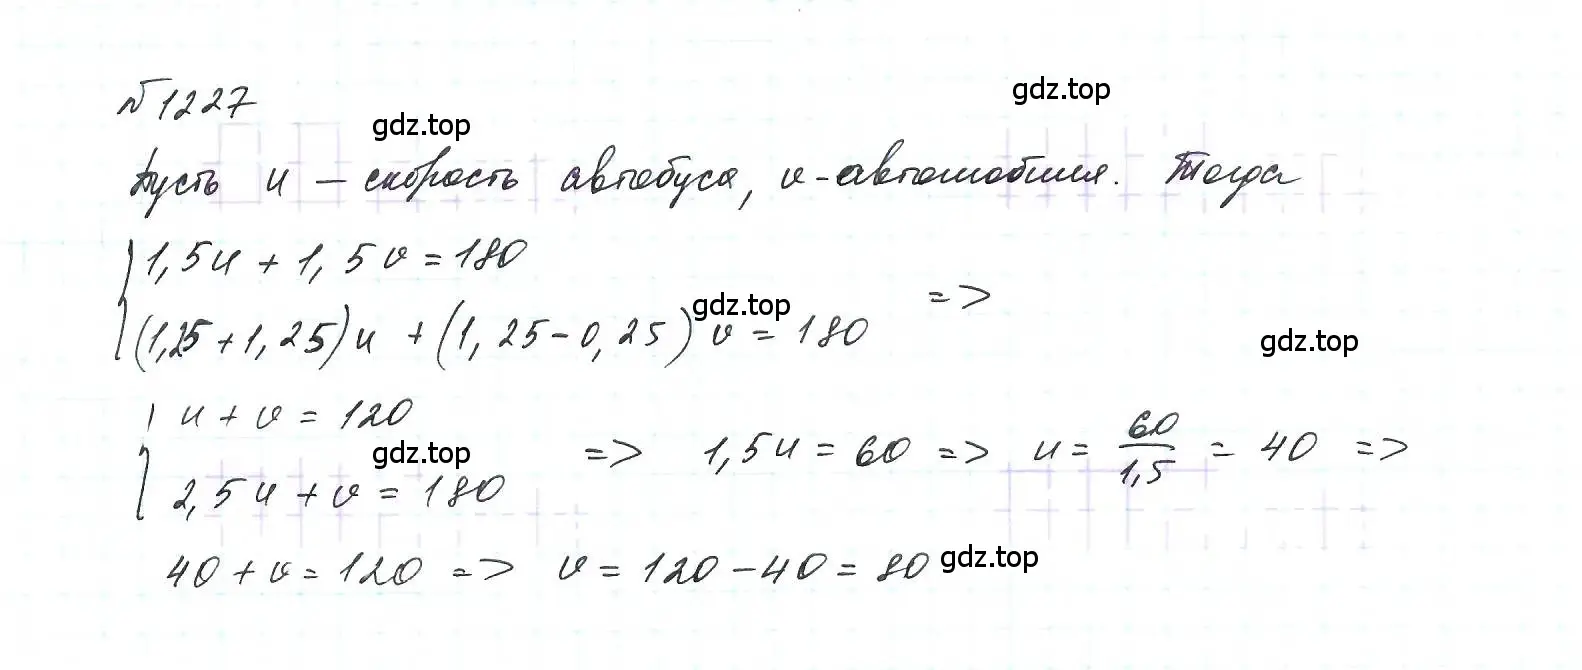 №1227
gdz.top
gdz.top
Пусть u – скорость автобуса, v - автомобиля. Тогда
1,5u + 1,5v = 180
(1,25 + 1,25)u + (1,25 - 0,25)v = 180 =>
gdz.top
gdz.top
u + v = 120
gdz.top
2,5u + v = 180 => 1,5u = 60 => u = 60/1,5 = 40 =>
40 + v = 120 => v = 120 - 40 = 80
gdz.top